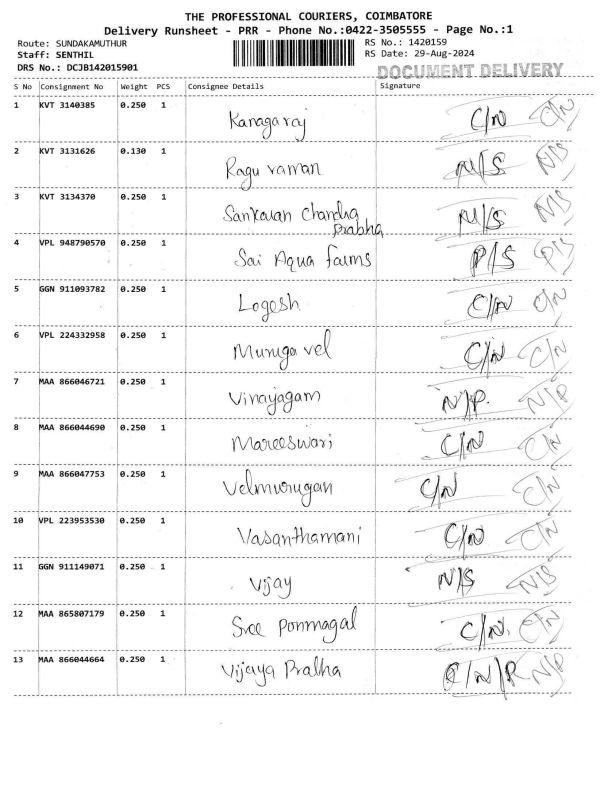 THE PROFESSIONAL COURIERS, COIMBATORE
Delivery Runsheet - PRR - Phone No.:0422-3505555 - Page No.:1
Route: SUNDAKAMUTHUR RS No.: 1420159
Staff: SENTHIL RS Date: 29-Aug-2024
DRS No.: DCJB142015901 DOCUMENT DELIVERY
S No Consignment No Weight PCS Consignee Details Signature
1 KVT 3140385 0.250 1 Kanagaraj C/N C/N
2 KVT 3131626 0.130 1 Ragu raman N/S N/S
3 KVT 3134370 0.250 1 Sankaran Chandra N/S N/S
Prabha
4 VPL 948790570 0.250 1 Sai Aqua farms P/S P/S
5 GGN 911093782 0.250 1 Logesh C/N C/N
6 VPL 224332958 0.250 1 Muruga vel C/N C/N
7 MAA 866046721 0.250 1 Vinayagam N/P. N/P
8 MAA 866044690 0.250 1 Mareeswari C/N C/N
9 MAA 866047753 0.250 1 Velmurugan C/N C/N
10 VPL 223953530 0.250 1 Vasanthamani C/N C/N
11 GGN 911149071 0.250 1 Vijay N/S N/S
12 MAA 865807179 0.250 1 Sree Ponmagal C/N. C/N
13 MAA 866044664 0.250 1 Vijaya Pralha C/N/P N/P